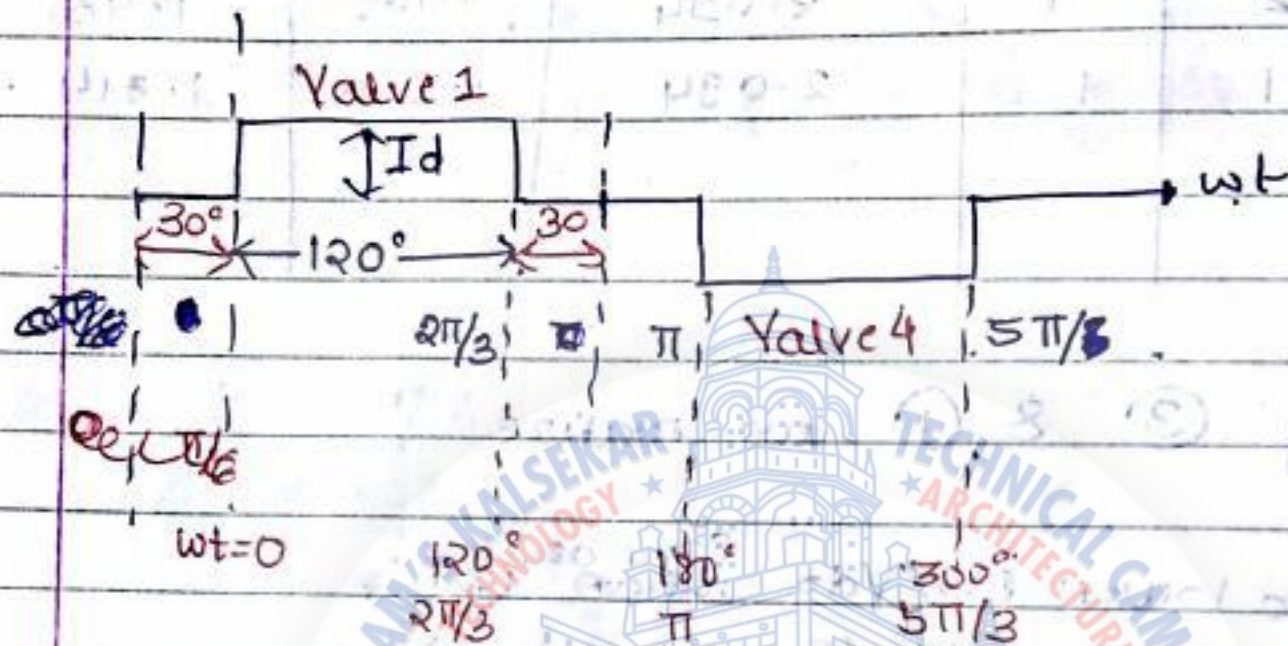 Valve 1
Id
wt
30°
120°
30
2π/3
π
Valve 4
5π/3
π/6
wt=0
120°
180°
300°
2π/3
π
5π/3
KALSEKAR TECHNICAL
TECHNOLOGY ★ ★ ARCHITECTURE